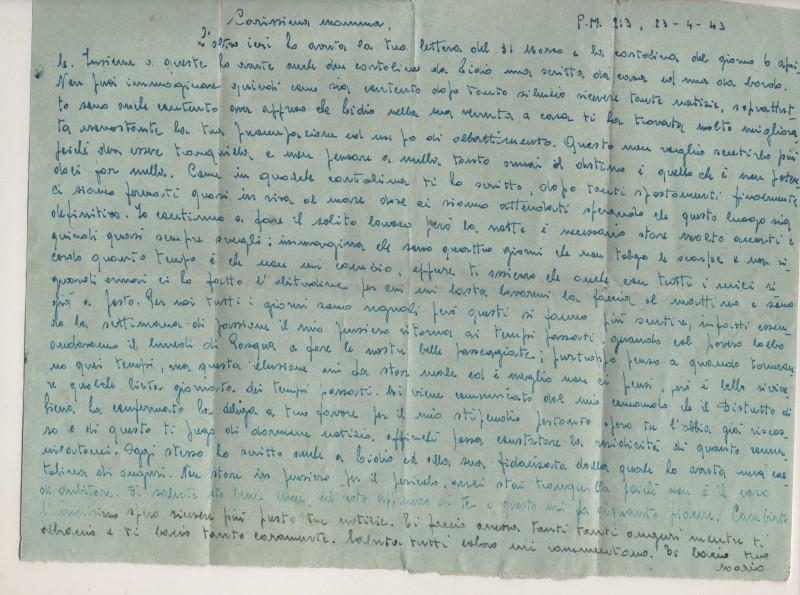 Carissima mamma, P.M. 213, 23-4-43
L'altro ieri ho avuta la tua lettera del 31 Marzo e la cartolina del giorno 6 apri
le. Insieme a queste ho avute anche due cartoline da Lidio una scritta da casa ed una da bordo.
Non puoi immaginare quindi come sia contento dopo tanto silenzio ricevere tante notizie, soprattut
to sono anche contento aver appreso che Lidio nella sua venuta a casa ti ha trovata molto migliora
ta nonostante la tua preoccupazione ed un po di abbattimento. Questo non voglio sentirlo più
poichè devi essere tranquilla e non pensare a nulla tanto ormai il destino è quello che è non
darci per nulla. Come in qualche cartolina ti ho scritto, dopo tanti spostamenti finalmente
ci siamo fermati quasi in riva al mare dove ci siamo attendati sperando che questo luogo sia
definitivo. Io continuo a fare il solito lavoro però la notte è necessario stare molto accorti e
quindi quasi sempre svegli; immagina che sono quattro giorni che non tolgo le scarpe e non ri
cordo quanto tempo è che non mi cambio, eppure ti assicuro che anche con tutti i miei ri
guardi ormai ci ho fatto l'abitudine per cui mi basta lavarmi la faccia al mattino e sono
già a posto. Per noi tutti i giorni sono uguali però questi si fanno più sentire, infatti essen
do la settimana di passione il mio pensiero ritorna ai tempi passati quando col povero babbo
andavamo il lunedì di Pasqua a fare le nostre belle passeggiate; purtroppo penso a quando torneran
no quei tempi, ma questa elusione mi fa star male ed è meglio non ci pensi, però è bello rivive
re qualche lieta giornata dei tempi passati. Mi viene comunicato dal mio comando che il Distretto di
ha confermato la delega a tuo favore per il mio stipendio pertanto spero tu l'abbia già riscos
so e di questo ti prego di darmene notizia, affinchè possa constatare la veridicità di quanto comu
nicatomi. Oggi stesso ho scritto anche a Lidio ed alla sua fidanzata dalla quale ho avuta una car
tolina di auguri. Non stare in pensiero per il pericolo, anzi stai tranquilla poichè non è il caso
di dubitare. Di salute sto bene come del resto apprendo di te e questo mi fa alquanto piacere. Cambiato
l'indirizzo spero ricevere più presto tue notizie. Ti faccio ancora tanti tanti auguri mentre ti
abbraccio e ti bacio tanto caramente. Saluta tutti coloro mi rammentano. Ti bacio tuo
Mario